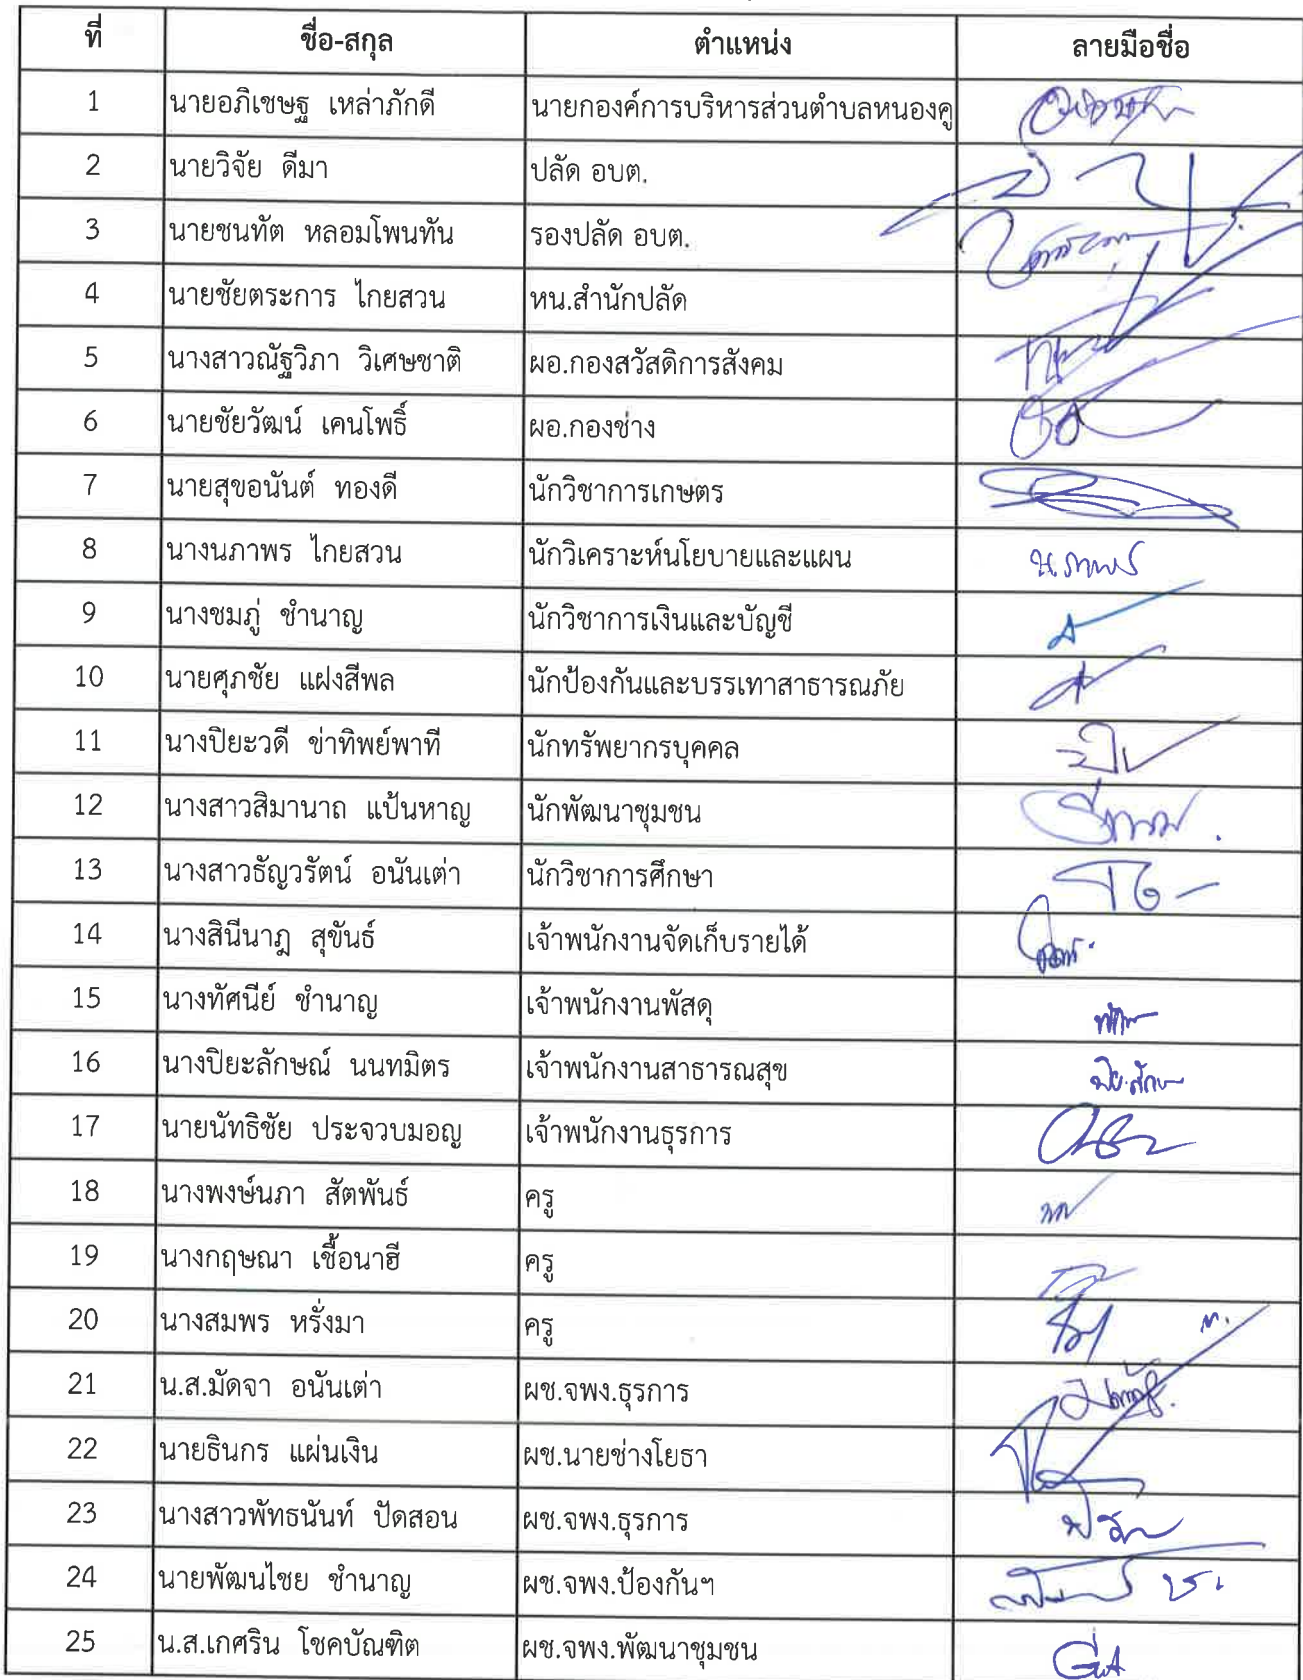 ที่ ชื่อ-สกุล ตำแหน่ง ลายมือชื่อ
1 นายอภิเชษฐ เหล่าภักดี นายกองค์การบริหารส่วนตำบลหนองคู
2 นายวิจัย ดีมา ปลัด อบต.
3 นายชนทัต หลอมโพนทัน รองปลัด อบต.
4 นายชัยตระการ ไกยสวน หน.สำนักปลัด
5 นางสาวณัฐวิภา วิเศษชาติ ผอ.กองสวัสดิการสังคม
6 นายชัยวัฒน์ เคนโพธิ์ ผอ.กองช่าง
7 นายสุขอนันต์ ทองดี นักวิชาการเกษตร
8 นางนภาพร ไกยสวน นักวิเคราะห์นโยบายและแผน
9 นางชมภู่ ชำนาญ นักวิชาการเงินและบัญชี
10 นายศุภชัย แฝงสีพล นักป้องกันและบรรเทาสาธารณภัย
11 นางปิยะวดี ข่าทิพย์พาที นักทรัพยากรบุคคล
12 นางสาวสิมานาถ แป้นหาญ นักพัฒนาชุมชน
13 นางสาวธัญวรัตน์ อนันเต่า นักวิชาการศึกษา
14 นางสินีนาฎ สุขันธ์ เจ้าพนักงานจัดเก็บรายได้
15 นางทัศนีย์ ชำนาญ เจ้าพนักงานพัสดุ
16 นางปิยะลักษณ์ นนทมิตร เจ้าพนักงานสาธารณสุข
17 นายนัทธิชัย ประจวบมอญ เจ้าพนักงานธุรการ
18 นางพงษ์นภา สัตพันธ์ ครู
19 นางกฤษณา เชื้อนาฮี ครู
20 นางสมพร หรั่งมา ครู
21 น.ส.มัดจา อนันเต่า ผช.จพง.ธุรการ
22 นายธินกร แผ่นเงิน ผช.นายช่างโยธา
23 นางสาวพัทธนันท์ ปัดสอน ผช.จพง.ธุรการ
24 นายพัฒนไชย ชำนาญ ผช.จพง.ป้องกันฯ
25 น.ส.เกศริน โชคบัณฑิต ผช.จพง.พัฒนาชุมชน